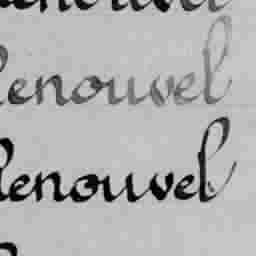 enouvel
lenouvel
lenouvel